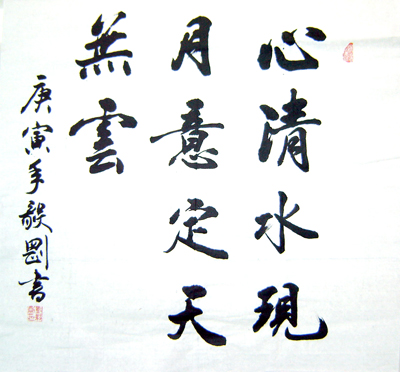 心清水現
月意定天
無雲
庚寅年毅剛書